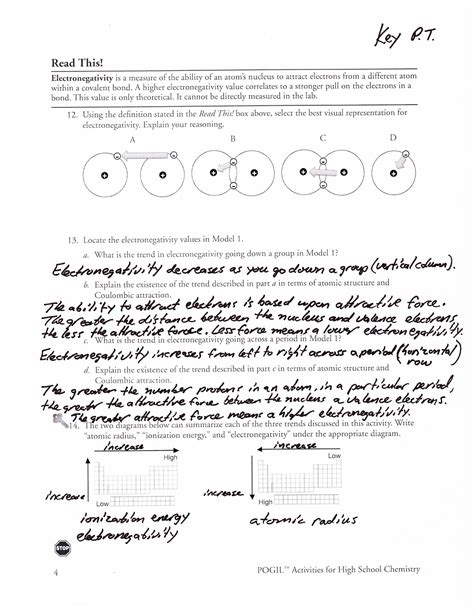 Key P.T.
Read This!
Electronegativity is a measure of the ability of an atom's nucleus to attract electrons from a different atom
within a covalent bond. A higher electronegativity value correlates to a stronger pull on the electrons in a
bond. This value is only theoretical. It cannot be directly measured in the lab.
12. Using the definition stated in the Read This! box above, select the best visual representation for
electronegativity. Explain your reasoning.
A B C D
13. Locate the electronegativity values in Model 1.
a. What is the trend in electronegativity going down a group in Model 1?
Electronegativity decreases as you go down a group (vertical column).
b. Explain the existence of the trend described in part a in terms of atomic structure and
Coulombic attraction.
The ability to attract electrons is based upon attractive force.
The greater the distance between the nucleus and valence electrons,
the less the attractive force. Less force means a lower electronegativity.
c. What is the trend in electronegativity going across a period in Model 1?
Electronegativity increases from left to right across a period (horizontal
row
d. Explain the existence of the trend described in part c in terms of atomic structure and
Coulombic attraction.
The greater the number protons in an atom, in a particular period,
the greater the attractive force between the nucleus & valence electrons.
The greater attractive force means a higher electronegativity.
14. The two diagrams below can summarize each of the three trends discussed in this activity. Write
"atomic radius," "ionization energy," and "electronegativity" under the appropriate diagram.
increase increase
High Low
increase increase
Low High
ionization energy atomic radius
electronegativity
STOP
4 POGIL™ Activities for High School Chemistry